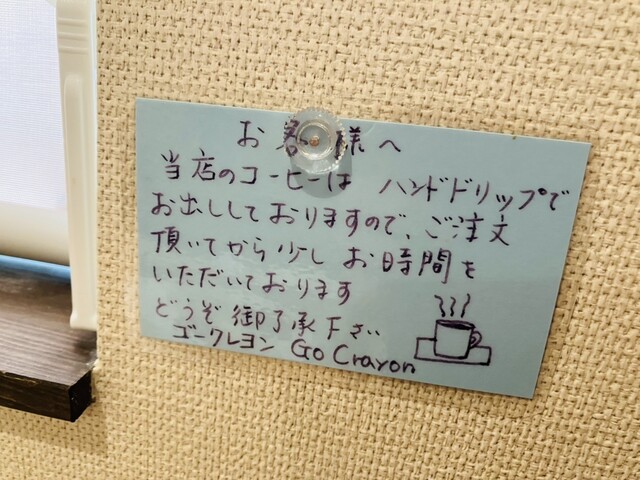 お客様へ
当店のコーヒーは ハンドドリップで
お出ししておりますので、ご注文
頂いてから少し お時間を
いただいております
どうぞ御了承下さい
ゴークレヨン Go Crayon